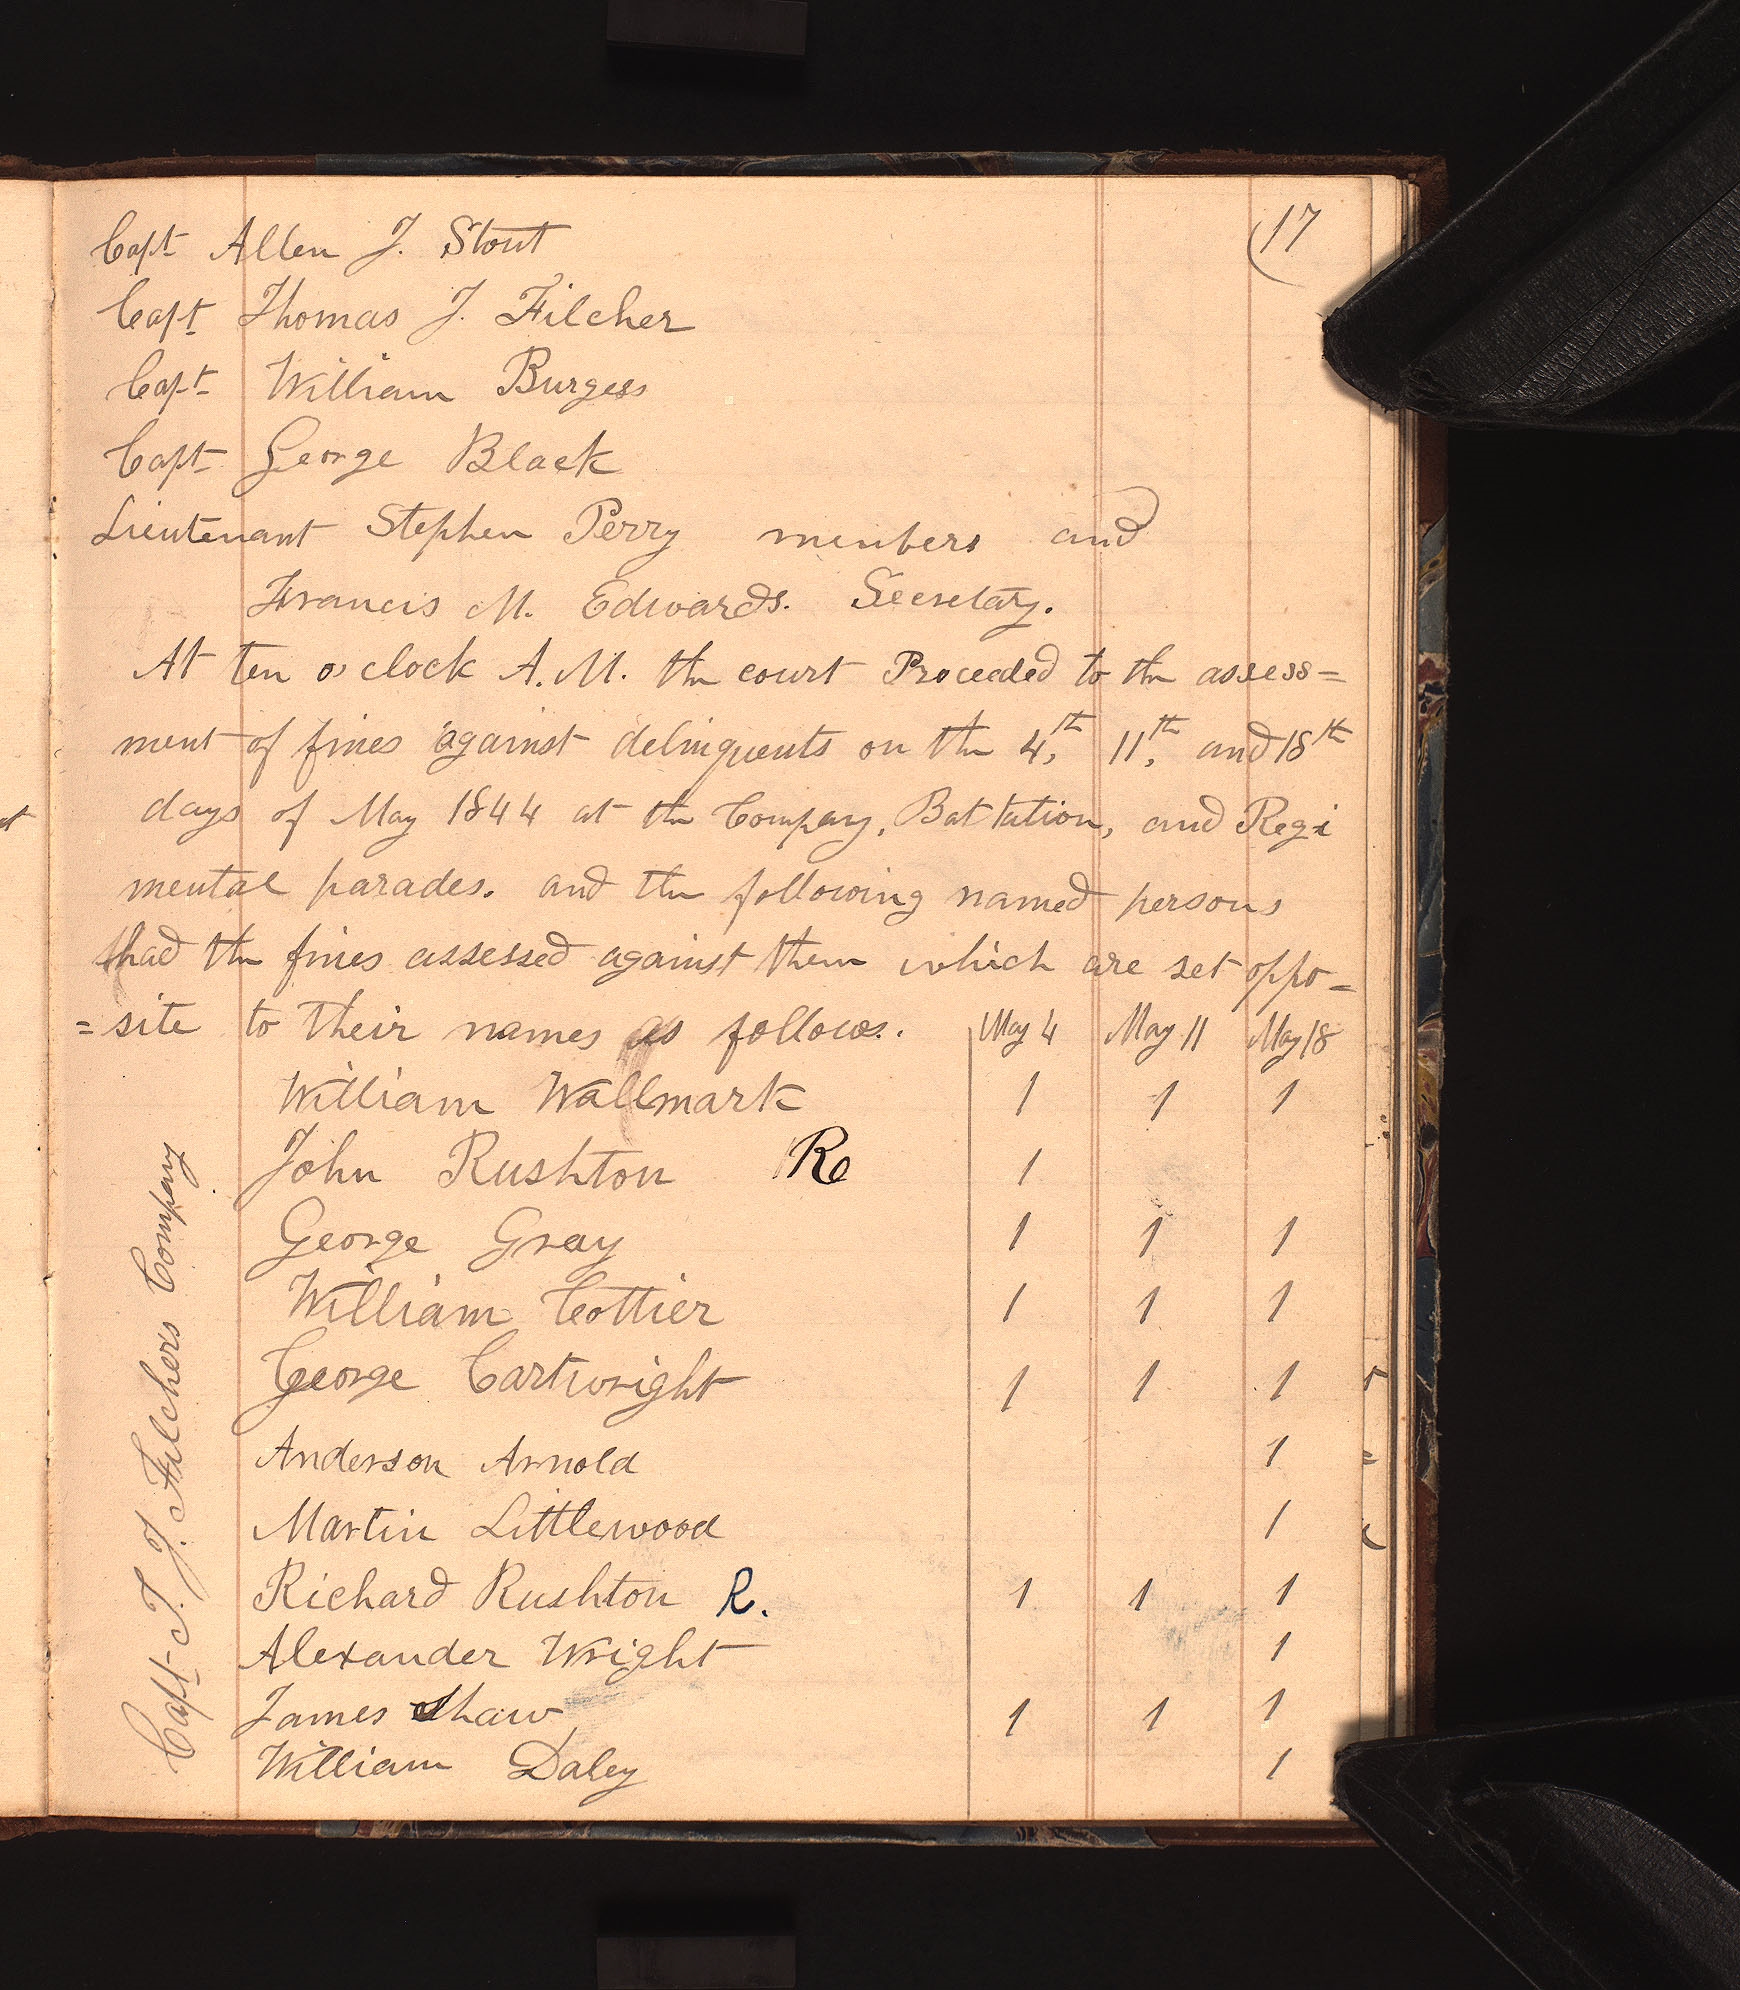 17
Capt Allen J. Stout
Capt Thomas J. Filcher
Capt William Burgess
Capt George Black
Lieutenant Stephen Perry members and
Francis M. Edwards. Secretary.
At ten o, clock A.M. the court Proceeded to the assess=
ment of fines against delinquents on the 4th, 11th, and 18th
days of May 1844 at the Company, Battation, and Regi
mental parades. and the following named persons
had the fines assessed against them which are set oppo=
=site to their names as follows. May 4 May 11 May 18
William Wallmark 1 1 1
John Rushton R 1
George Gray 1 1 1
William Cottier 1 1 1
George Cartwright 1 1 1
Anderson Arnold 1
Martin Littlewood 1
Richard Rushton R. 1 1 1
Alexander Wright 1
James Shaw 1 1 1
William Daley 1
Capt T. J. Filchers Company